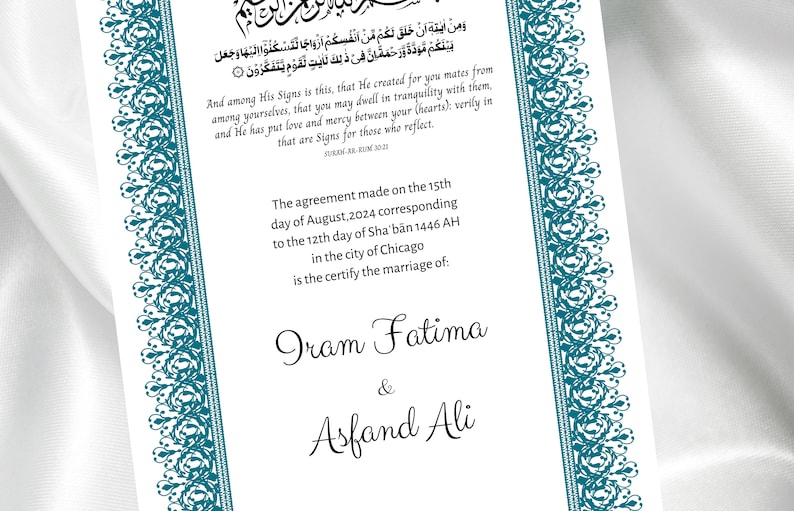 وَمِنْ اٰيٰتِهٖٓ اَنْ خَلَقَ لَكُمْ مِّنْ اَنْفُسِكُمْ اَزْوَاجًا لِّتَسْكُنُوْٓا اِلَيْهَا وَجَعَلَ
بَيْنَكُمْ مَّوَدَّةً وَّرَحْمَةً اِنَّ فِيْ ذٰلِكَ لَاٰيٰتٍ لِّقَوْمٍ يَّتَفَكَّرُوْنَ
And among His Signs is this, that He created for you mates from
among yourselves, that you may dwell in tranquility with them,
and He has put love and mercy between your (hearts): verily in
that are Signs for those who reflect.
SURAH-AR-RUM 30:21
The agreement made on the 15th
day of August,2024 corresponding
to the 12th day of Shaʿbān 1446 AH
in the city of Chicago
is the certify the marriage of:
Iram Fatima
&
Asfand Ali